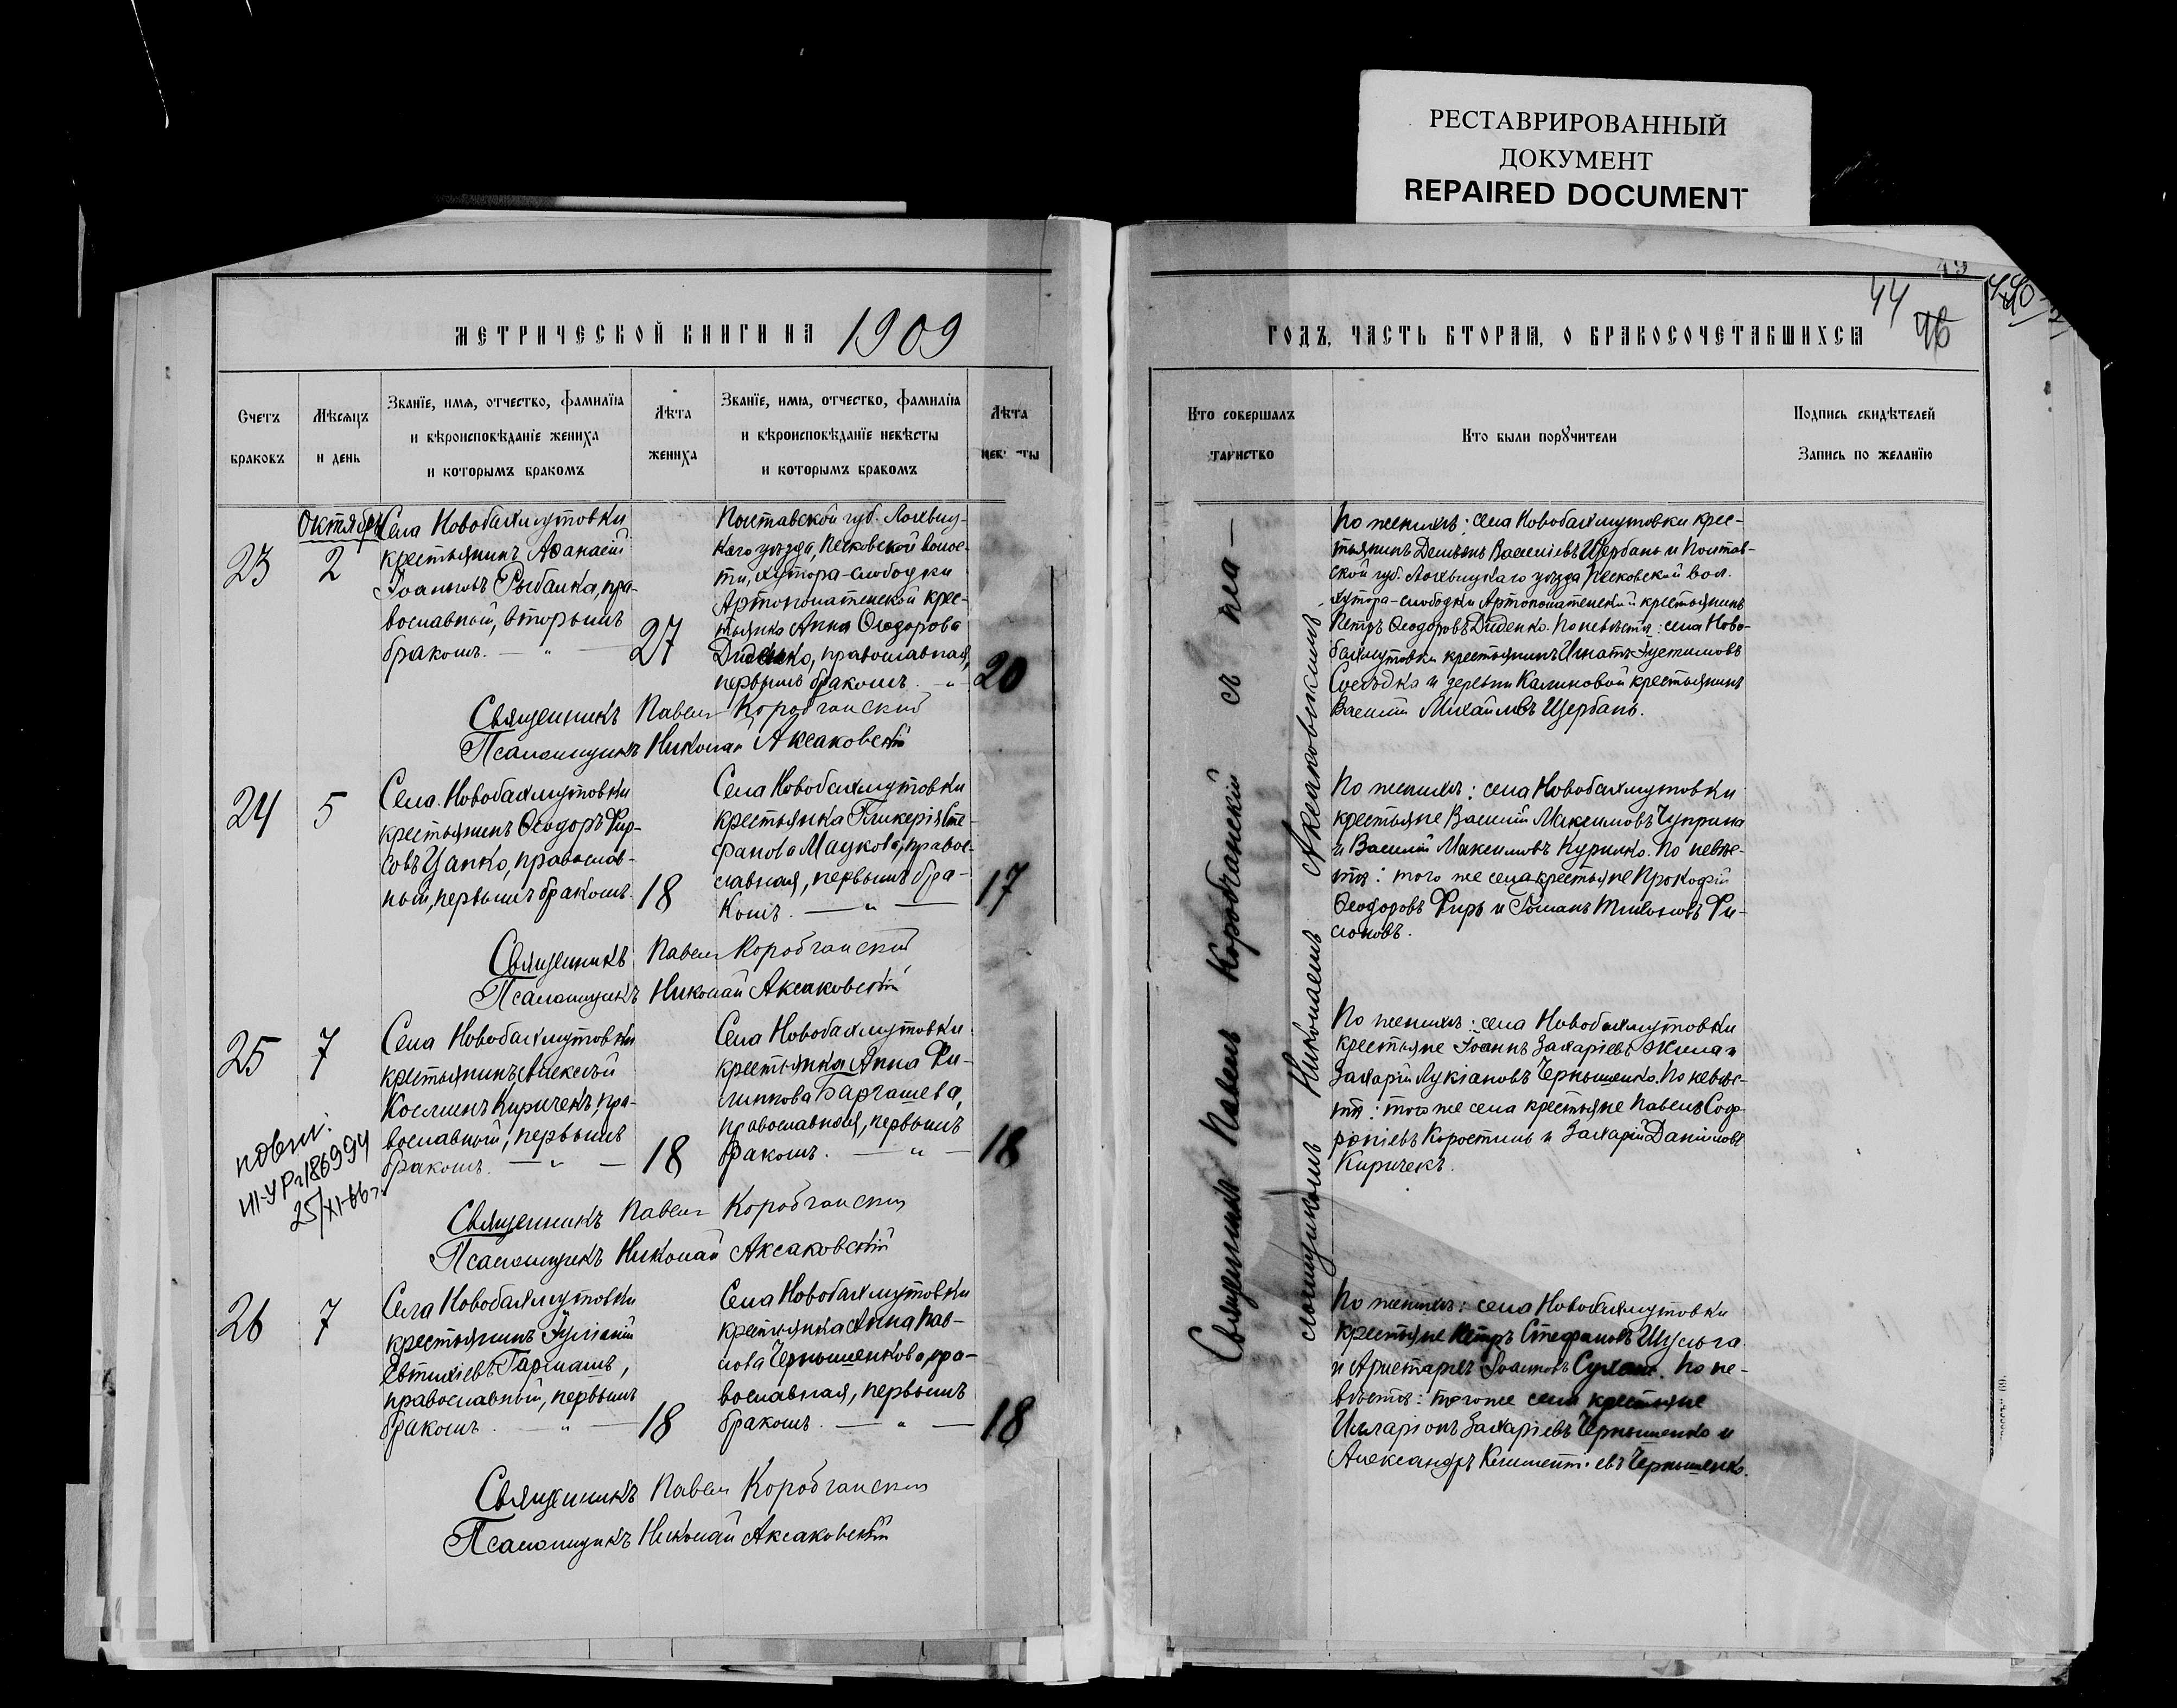 РЕСТАВРИРОВАННЫЙ
ДОКУМЕНТ
REPAIRED DOCUMENT
МЕТРИЧЕСКОЙ КНИГИ НА 1909
Счетъ
браковъ
Мѣсяцъ
и день
Званїе, имя, отчество, фамилїа
и вѣроисповѣданїе жениха
и которымъ бракомъ
Лѣта
жениха
Званїе, имя, отчество, фамилїа
и вѣроисповѣданїе невѣсты
и которымъ бракомъ
Лѣта
23
Октябрь
2
Села Новобахмутовки
крестьянинъ Аѳанасій
Іоанновъ Рыбалка, пра-
вославный, вторымъ
бракомъ. — „ —
27
Полтавской губ. Лохвиц-
каго уѣзда, Песковской волос-
ти, хутора-слободки
Артополотенской крес-
тьянка Анна Ѳеодорова
Диденко, православная,
первымъ бракомъ. — „ —
20
Священникъ Павелъ Коробчанский
Псаломщикъ Николай Аксаковскій
24
5
Села Новобахмутовки
крестьянинъ Ѳеодоръ Фир-
совъ Цапко, православ-
ный, первымъ бракомъ.
18
Села Новобахмутовки
крестьянка Гликерія Сте-
фанова Мацкова, правос-
лавная, первымъ бра-
комъ. — „ —
17
Священникъ Павелъ Коробчанский
Псаломщикъ Николай Аксаковскій
25
7
Села Новобахмутовки
крестьянинъ Алексѣй
Косминъ Киричекъ, пра-
вославный, первымъ
бракомъ. — „ —
18
Села Новобахмутовки
крестьянка Анна Фи-
липпова Барташева,
православная, первымъ
бракомъ. — „ —
18
повт.
III-УР №186994
25/XI-66г.
Священникъ Павелъ Коробчанский
Псаломщикъ Николай Аксаковскій
26
7
Села Новобахмутовки
крестьянинъ Іуліаній
Евтихіевъ Гармашъ,
православный, первымъ
бракомъ. — „ —
18
Села Новобахмутовки
крестьянка Анна Пав-
лова Чернышенкова, пра-
вославная, первымъ
бракомъ. — „ —
18
Священникъ Павелъ Коробчанский
Псаломщикъ Николай Аксаковскій
49
44
46
ГОДЪ, ЧАСТЬ ВТОРАЯ, О БРАКОСОЧЕТАВШИХСЯ
Кто совершалъ
таинство
Кто были порꙋчители
Подпись свидѣтелей
Запись по желанїю
Священникъ Павелъ Коробчанскій съ пса-
ломщикомъ Николаемъ Аксаковскимъ.
По женихѣ: села Новобахмутовки крес-
тьянинъ Демьянъ Василіевъ Щербань и Полтав-
ской губ. Лохвицкаго уѣзда Песковской вол.
хутора-слободки Артополотенской крестьянинъ
Петръ Ѳеодоровъ Диденко. По невѣстѣ: села Ново-
бахмутовки крестьянинъ Игнатъ Іустиновъ
Сосѣдка и деревни Калиновой крестьянинъ
Василій Михайловъ Щербань.
По женихѣ: села Новобахмутовки
крестьяне Василій Максимовъ Чуприна
и Василій Максимовъ Курилко. По невѣс-
тѣ: того же села крестьяне Прокофій
Ѳеодоровъ Фирь и Романъ Тихоновъ Фи-
лоновъ.
По женихѣ: села Новобахмутовки
крестьяне Іоаннъ Захаріевъ Жила и
Захарій Лукіановъ Чернышенко. По невѣс-
тѣ: того же села крестьяне Павелъ Соф-
роніевъ Коростиль и Захарій Даніиловъ
Киричекъ.
По женихѣ: села Новобахмутовки
крестьяне Петръ Стефановъ Шульга
и Аристархъ Іоанновъ. По не-
вѣстѣ: того же села крестьяне
Илларіонъ Захаріевъ Чернышенко и
Александръ Климентіевъ Чернышенко.